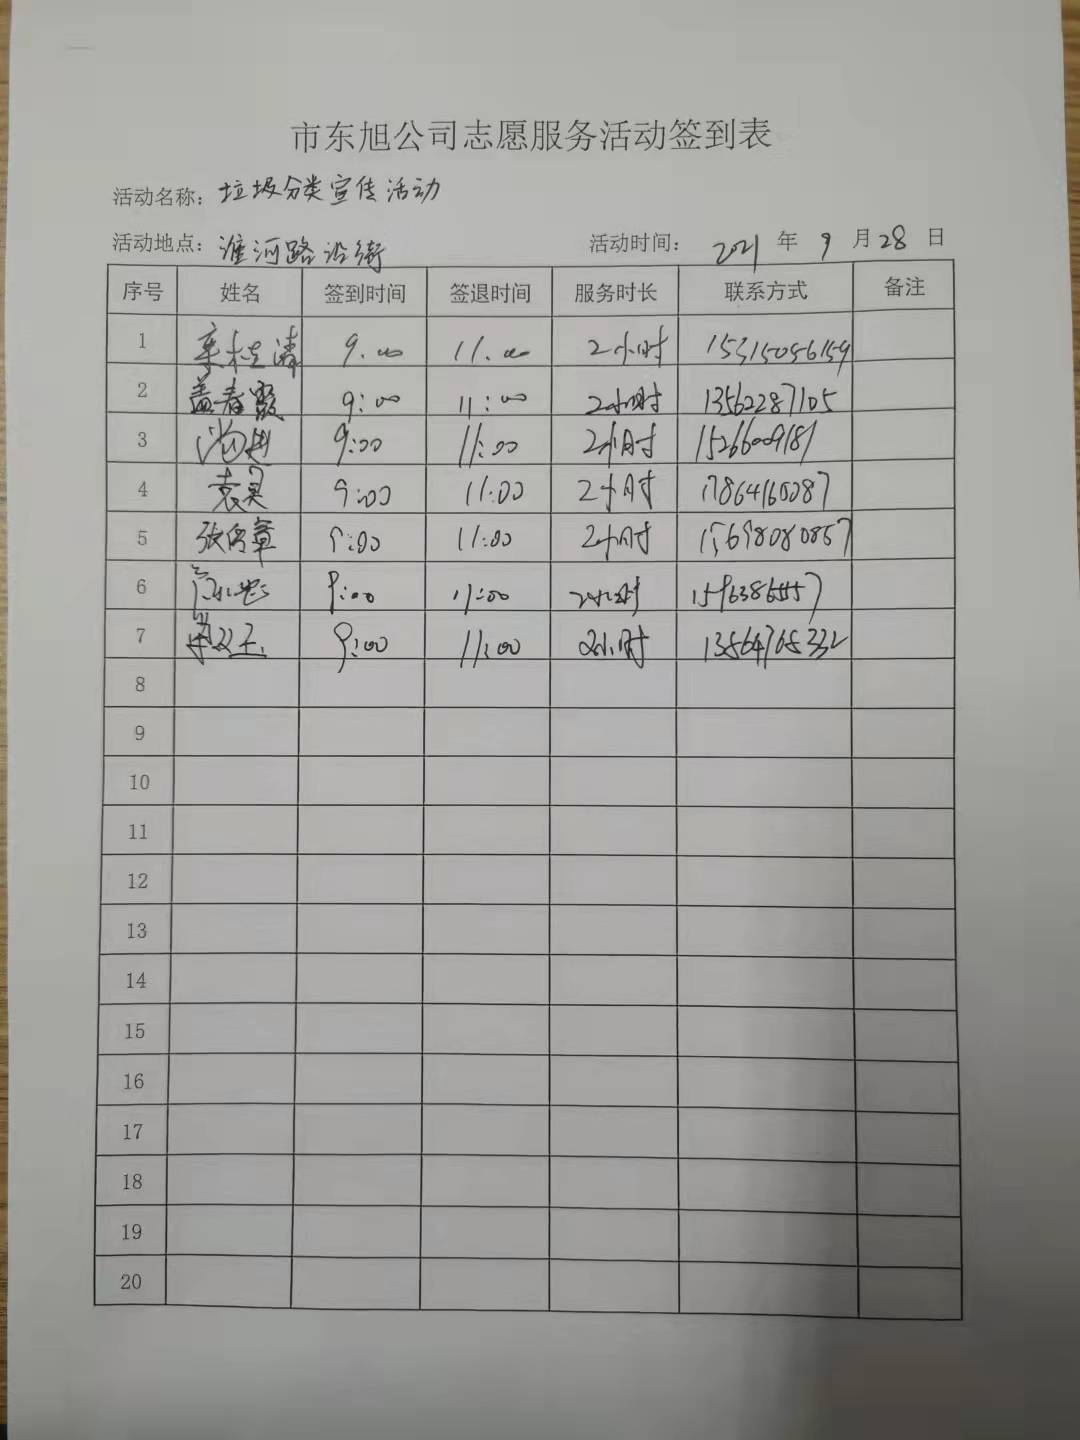 市东旭公司志愿服务活动签到表
活动名称：垃圾分类宣传活动
活动地点：淮河路沿街 活动时间： 2021 年 9 月 28 日
序号 姓名 签到时间 签退时间 服务时长 联系方式 备注
1 9:00 11:00 2小时 15315056159
2 盖春霞 9:00 11:00 2小时 13562287105
3 9:00 11:00 2小时 15266009181
4 袁昊 9:00 11:00 2小时 17864160087
5 9:00 11:00 2小时 15698080857
6 9:00 11:00 2小时
7 9:00 11:00 2小时 13564705332
8
9
10
11
12
13
14
15
16
17
18
19
20